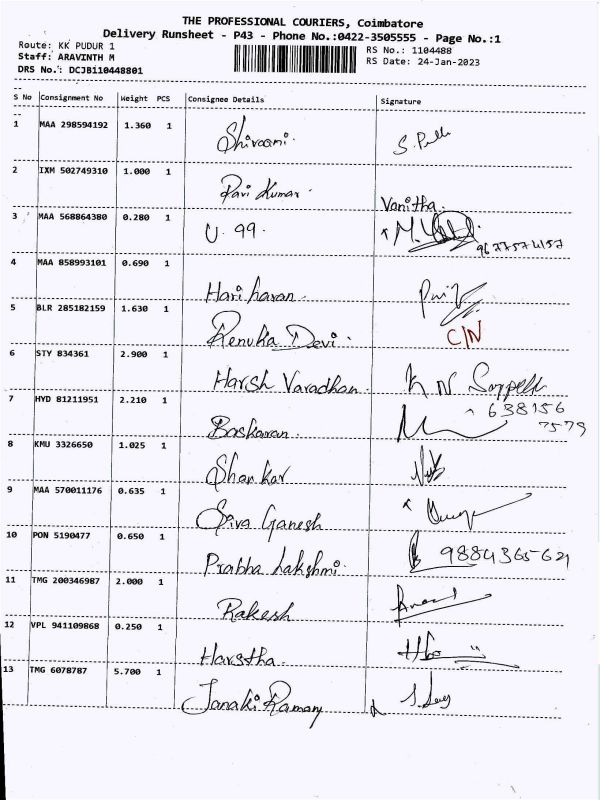 THE PROFESSIONAL COURIERS, Coimbatore
Delivery Runsheet - P43 - Phone No.:0422-3505555 - Page No.:1
Route: KK PUDUR 1
Staff: ARAVINTH M
DRS No.: DCJBi110448801
RS No.: 1104488
RS Date: 24-Jan-2023
S No Consignment No Weight PCS Consignee Details Signature
1 MAA 298594192 1.360 1 Shivaani.
2 IXM 502749310 1.000 1 Pari Kumar. Vanitha.
3 MAA 568864380 0.280 1 U. 99. 9677574157
4 MAA 858993101 0.690 1 Hari haran.
5 BLR 285182159 1.630 1 Renuka Devi. C/N
6 STY 834361 2.900 1 Harish Varadhan. K N
7 HYD 81211951 2.210 1 Baskaran. 638156
7579
8 KMU 3326650 1.025 1 Shankar
9 MAA 570011176 0.635 1 Siva Ganesh
10 PON 5190477 0.650 1 Prabha Lakshmi. 9884365621
11 TMG 200346987 2.000 1 Rakesh
12 VPL 941109868 0.250 1 Harstha.
13 TMG 6078787 5.700 1 Janaki Raman